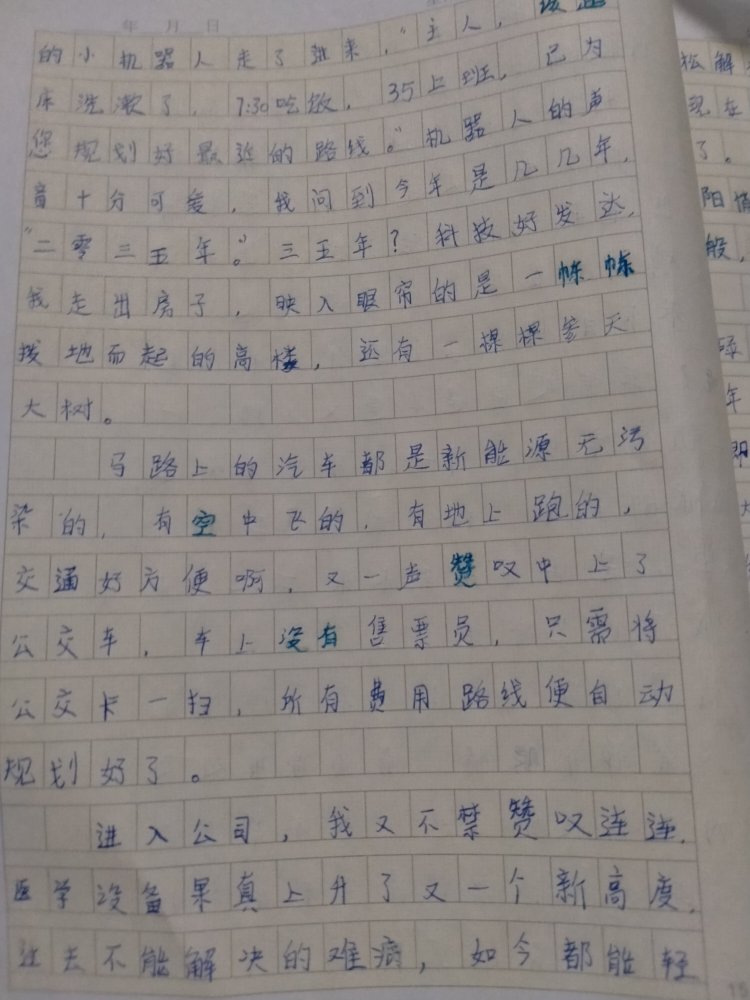 年 月 日
的小机器人走了进来，“主人，该起
床洗漱了，7:30吃饭，35上班，已为
您规划好最近的路线。”机器人的声
音十分可爱，我问到今年是几几年，
“二零三五年。”三五年？科技好发达，
我走出房子，映入眼帘的是一栋栋
拔地而起的高楼，还有一棵棵参天
大树。
马路上的汽车都是新能源无污
染的，有空中飞的，有地上跑的，
交通好方便啊，又一声赞叹中上了
公交车，车上没有售票员，只需将
公交卡一扫，所有费用路线便自动
规划好了。
进入公司，我又不禁赞叹连连，
医学设备果真上升了又一个新高度，
过去不能解决的难病，如今都能轻
松解
现在
了。
阳
般，
年
即